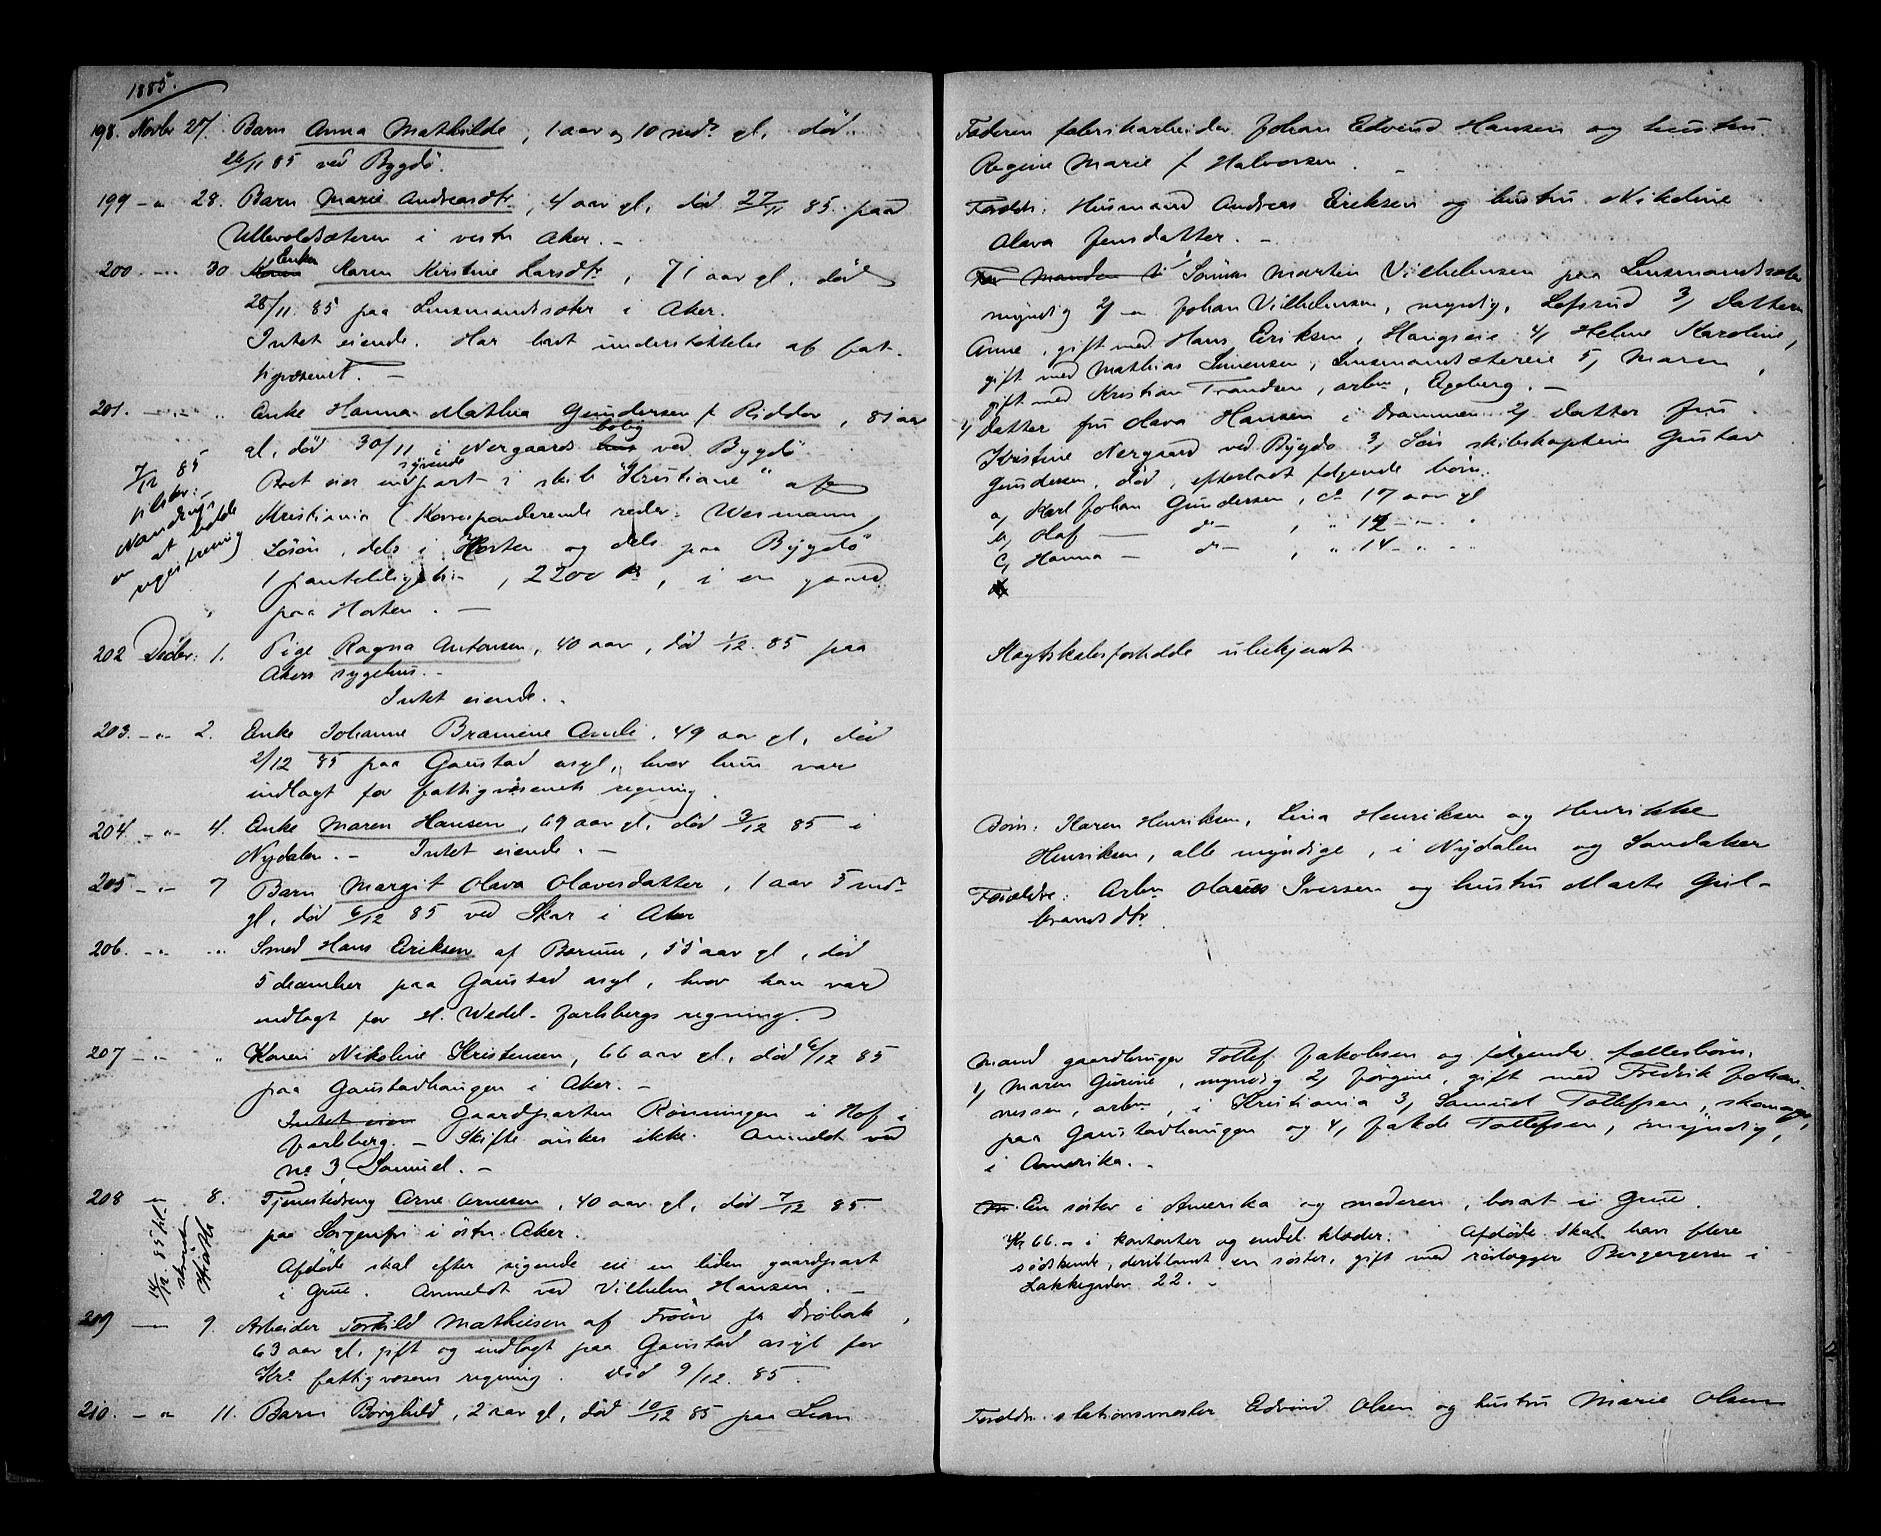 1885.
198. Novbr 27. Barn Anna Mathilde, 1 aar og 10 mdr gl. død
26/11 85 ved Bygdö.
Faderen fabrikarbeider Johan Edvind Hansen og hustru
Regine Marie f Halvorsen.
199 -"- 28. Barn Marie Andreasdtr, 4 aar gl. död 27/11 85 paa
Ullevoldsæteren i vestr Aker. -
Forældr: Husmand Andreas Eriksen og hustru Nikoline
Olava Jensdatter. -
200. -"- 30 Enke Karen Kirstine Larsdtr, 71 aar gl. död
28/11. 85 paa Lensmandsæter i Aker.
Intet eiende. Har havt understøttelse af fat-
tigvæsenet. -
1/ Sönnen Martin Vilhelmsen paa Lensmandsæter
myndig 2/ - Johan Vilhelmsen, myndig, 3/ Datteren
Anne, gift med Hans Eriksen, 4/ Helene Karoline,
gift med Mathias Simensen, Lensmandsætereie 5/ Maren,
gift med Kristian Trandsen, arbr, Egeberg. -
201. -"- " Enke Hanna Mathea Gundersen f Ridder, 81 aar
gl. död 30/11 i Nergaards bolig ved Bygdö
Boet eier en syvende part i skib "Kristiane" af
Kristiania (Korresponderende reder: Wesmann)
Lösöre, dels i Horten og dels paa Bygdö
1 panteobligation, 2200 kr, i en gaard
paa Horten. -
7/12 85
at holde
registrering
1/ Datter fru Olava Hansen i Drammen 2/ Datter fru
Kristine Nergaard ved Bygdö 3/ Sön skibskaptein Gustav
Gundersen, död, efterladt følgende børn:
a, Karl Johan Gundersen, ca 17 aar gl
b, Olaf - do - , " 12 - " - .
c, Hanna - do - , " 14 - " -
202 Decbr: 1. Pige Ragna Antonsen, 40 aar, död 1/12. 85 paa
Akers sygehus. -
Intet eiende. -
Slægtskabsforholde ubekjendt
203. -"- 2. Enke Johanne Bramine Amli, 49 aar gl. död
2/12 85 paa Gaustad asyl, hvor hun var
indlagt for fattigvæsenets regning.
204. -"- 4. Enke Maren Hansen, 69 aar gl. död 3/12 85 i
Nydalen. - Intet eiende. -
Börn: Karen Henriksen, Lina Henriksen og Henrikke
Henriksen, alle myndige, i Nydalen og Sandaker
205 -"- 7 Barn Margit Olava Olavesdatter, 1 aar 5 mdr
gl. död 6/12 85 ved Skar i Aker
Forældre: Arbr Olaves Iversen og hustru Marte Gul-
brandsdtr.
206. -"- " Smed Hans Eriksen af Bærum, 55 aar gl, död
5 december paa Gaustad asyl, hvor han var
indlagt for H. Wedel-Jarlsbergs regning.
207 -"- " Karen Nikoline Kristensen, 66 aar gl. död 6/12 85
paa Gaustadhaugen i Aker. -
Intet eien Gaardparten Rönningen i Hof i
Jarlsberg. - Skifte önskes ikke. Anmeldt ved
no 3 Samuel. -
Mand gaardbruger Tollef Jakobsen og følgende fællesbörn:
1/ Maren Gurine, myndig 2/ Jørgine, gift med Fredrik Johan-
nessen, arbr, i Kristiania 3/ Samuel Tollefsen, skomager,
paa Gaustadhaugen og 4/ Jakob Tollefsen, myndig,
i Amerika. -
208 -"- 8. Tjenestedreng Arne Arnesen, 40 aar gl. död 7/12 85.
paa Sorgenfri i östr Aker.
Afdøde skal efter sigende eie en liden gaardpart
i Grue. Anmeldt ved Vilhelm Hansen. -
En søster i Amerika og moderen, bosat i Grue.
Kr 66. - i kontanter og endel klæder. Afdøde skal have flere
sødskende, deriblandt en søster, gift med
Lakkegaden 22. -
209 - 9. Arbeider Torkild Mathiesen af Fröen pr Dröbak,
63 aar gl. gift og indlagt paa Gaustad asyl for
Kra fattigvæsens regning. Död 9/12. 85.
210. -"- 11. Barn Borghild, 2 aar gl, död 10/12 85 paa Lian
Forældr: stationsmester Edvind Olsen og hustru Marie Olsen